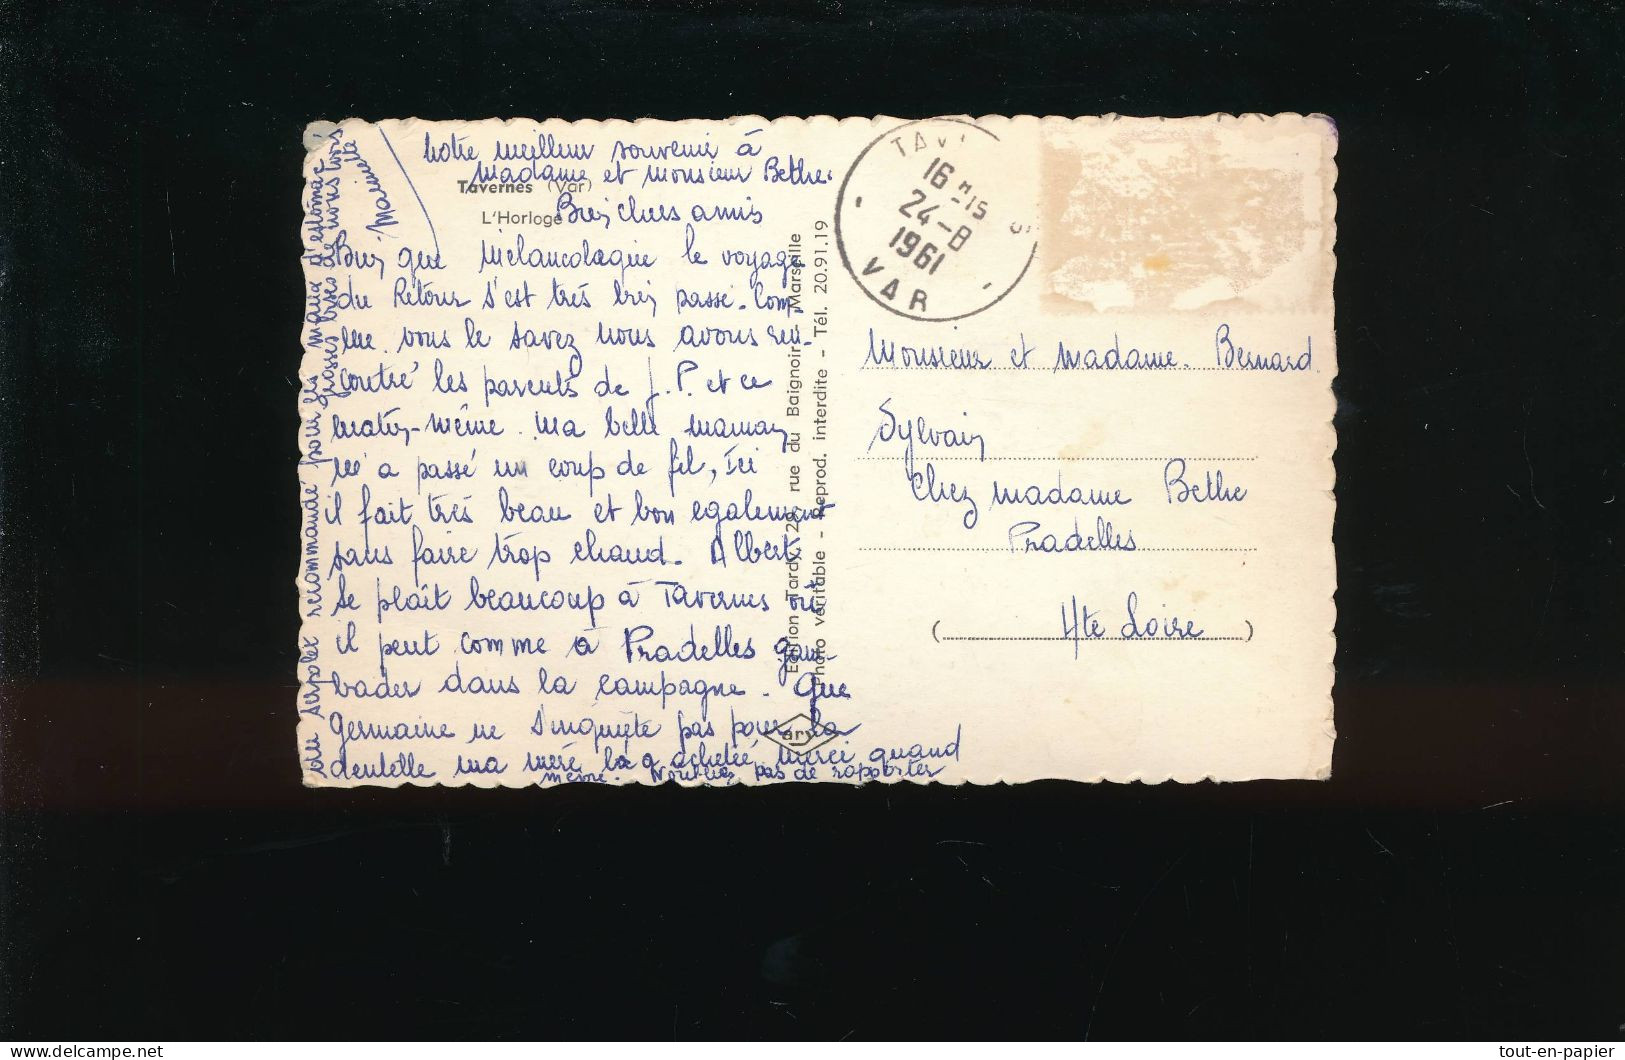 Notre meilleur souvenir à
Madame et Monsieur Bethe.
Tavernes (Var)
L'Horloge
Bien chers amis
Bien que mélancolique le voyage
du Retour s'est très bien passé. Com-
me vous le savez nous avons ren-
contré les parents de J. P. et ce
matin-même ma belle maman
m'a passé un coup de fil, Ici
il fait très beau et bon egalement
sans faire trop chaud. Albert
se plaît beaucoup à Tavernes où
il peut comme à Pradelles gam-
bader dans la campagne. Que
Germaine ne s'inquiète pas pour la
dentelle ma mère l'a achetée, merci quand
même. N'oubliez pas de rapporter
du serpolet recommandé pour les maux d'estomac
grosses bises de nous trois
Marinette
Edition Tardy, 28, rue du Baignoir - Marseille
Photo véritable - Reprod. interdite - Tél. 20.91.19
16 H 15
24-8
1961
VAR
Monsieur et Madame. Bernard
Sylvain
Chez Madame Bethe
Pradelles
(Hte Loire)
www.delcampe.net
tout-en-papier